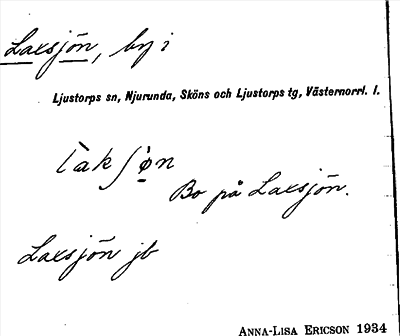 Laxsjön, by i
Ljustorps sn, Njurunda, Sköns och Ljustorps tg, Västernorrl. l.
làkʃø̀n
Bo på Laxsjön.
Laxsjön jb
ANNA-LISA ERICSON 1934